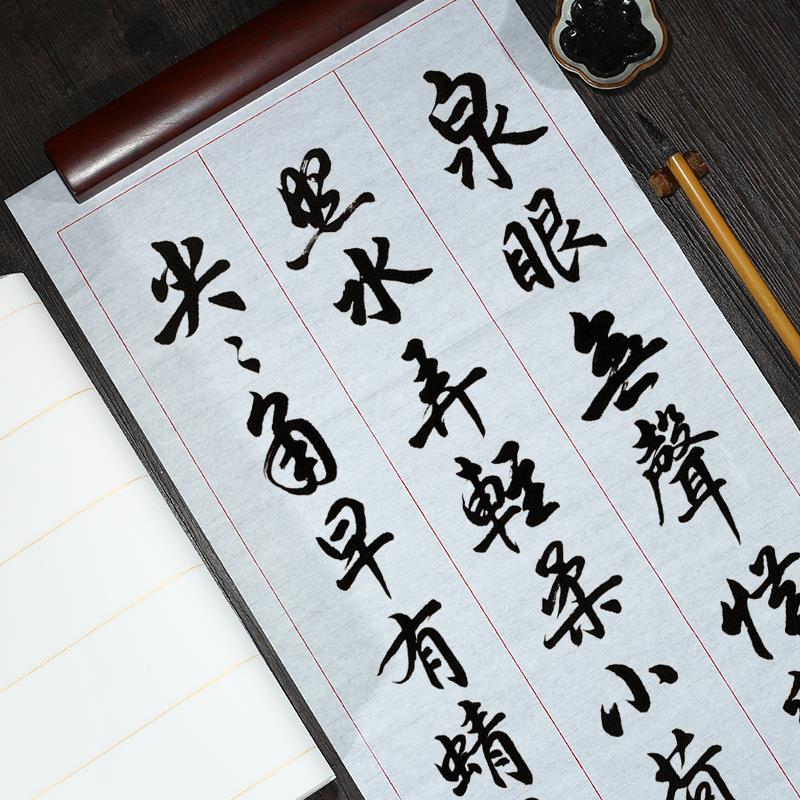 泉眼無聲惜
照水弄輕柔小荷
尖〻角早有蜻